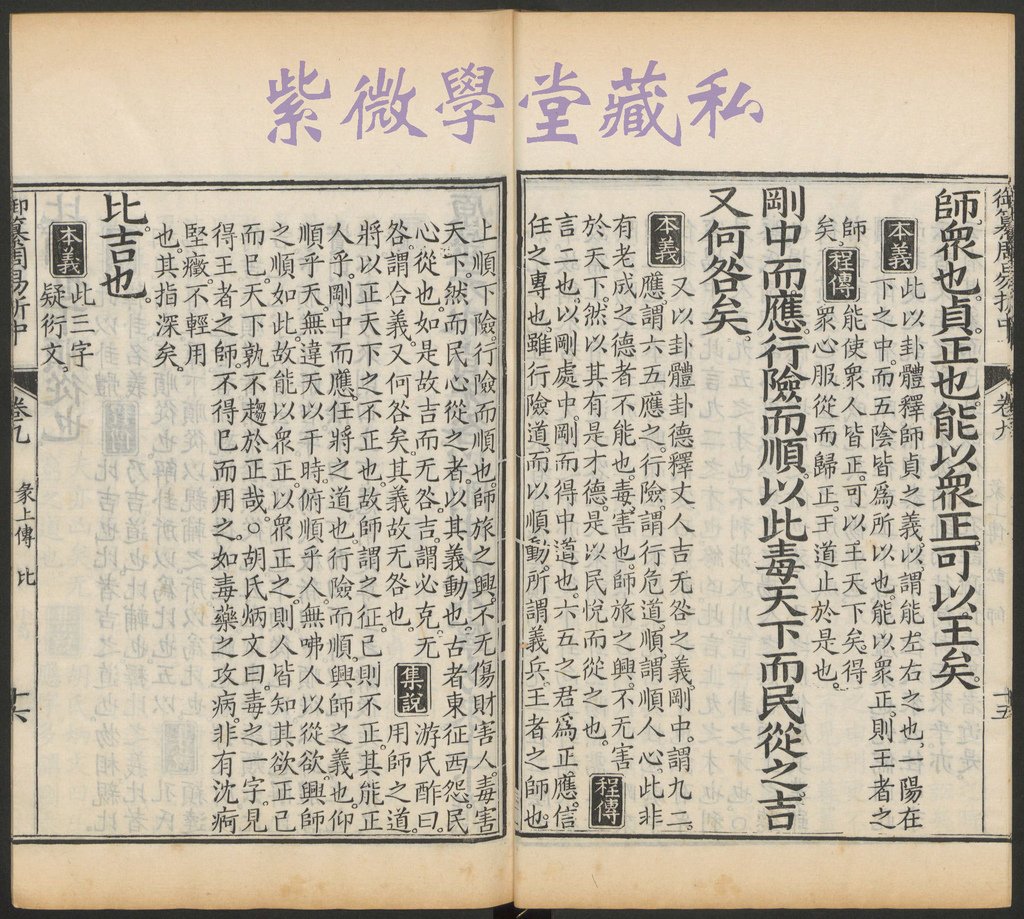 紫微學堂藏私
御纂周易折中 卷九 十五
師。衆也。貞。正也。能以衆正。可以王矣。
本義
此以卦體釋師貞之義。以。謂能左右之也。一陽在
下之中。而五陰皆爲所以也。能以衆正。則王者之
師
矣。
程傳
能使衆人皆正。可以王天下矣。得
衆心服從而歸正。王道止於是也。
剛中而應。行險而順。以此毒天下而民從之。吉
又何咎矣。
本義
又以卦體卦德釋丈人吉无咎之義。剛中。謂九二。
應。謂六五應之。行險。謂行危道。順。謂順人心。此非
有老成之德者不能也。毒。害也。師旅之興。不无害
於天下。然以其有是才德。是以民悅而從之也。
程傳
言二也。以剛處中。剛而得中道也。六五之君爲正應。信
任之專也。雖行險道。而以順動。所謂義兵。王者之師也。
上順下險。行險而順也。師旅之興。不无傷財害人。毒害
天下。然而民心從之者。以其義動也。古者東征西怨。民
心從也。如是故吉而无咎。吉。謂必克。无
咎。謂合義。又何咎矣。其義故无咎也。
集說
游氏酢曰。
用師之道。
將以正天下之不正也。故師謂之征。已則不正。其能正
人乎。剛中而應。任將之道也。行險而順。興師之義也。仰
順乎天。無違天以干時。俯順乎人。無咈人以從欲。興師
之順如此。故能以衆正。以衆正之。則人皆知其欲正已
而已。天下孰不趨於正哉。○胡氏炳文曰。毒之一字。見
得王者之師。不得已而用之。如毒藥之攻病。非有沈痾
堅癥。不輕用
也。其指深矣。
比。吉也。
本義
此三字
疑衍文。
御纂周易折中 卷九 彖上傳 比 十六